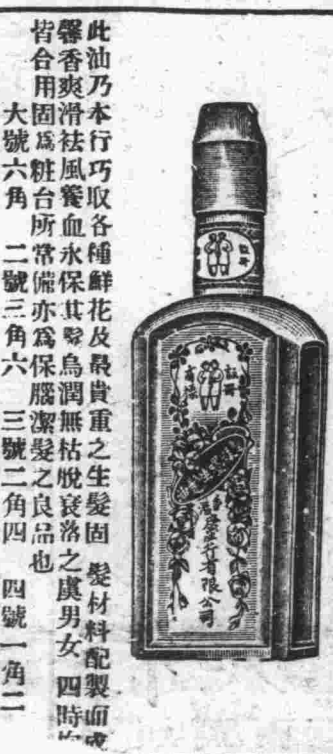 此油乃本行巧取各種鮮花及最貴重之生髮固髮材料配製而成
馨香爽滑袪風養血永保其髮烏潤無枯脫衰落之虞男女四時均
皆合用固爲粧台所常備亦爲保腦潔髮之良品也
大號六角 二號三角六 三號二角四 四號一角二
註冊
註冊
商標
行有限公司